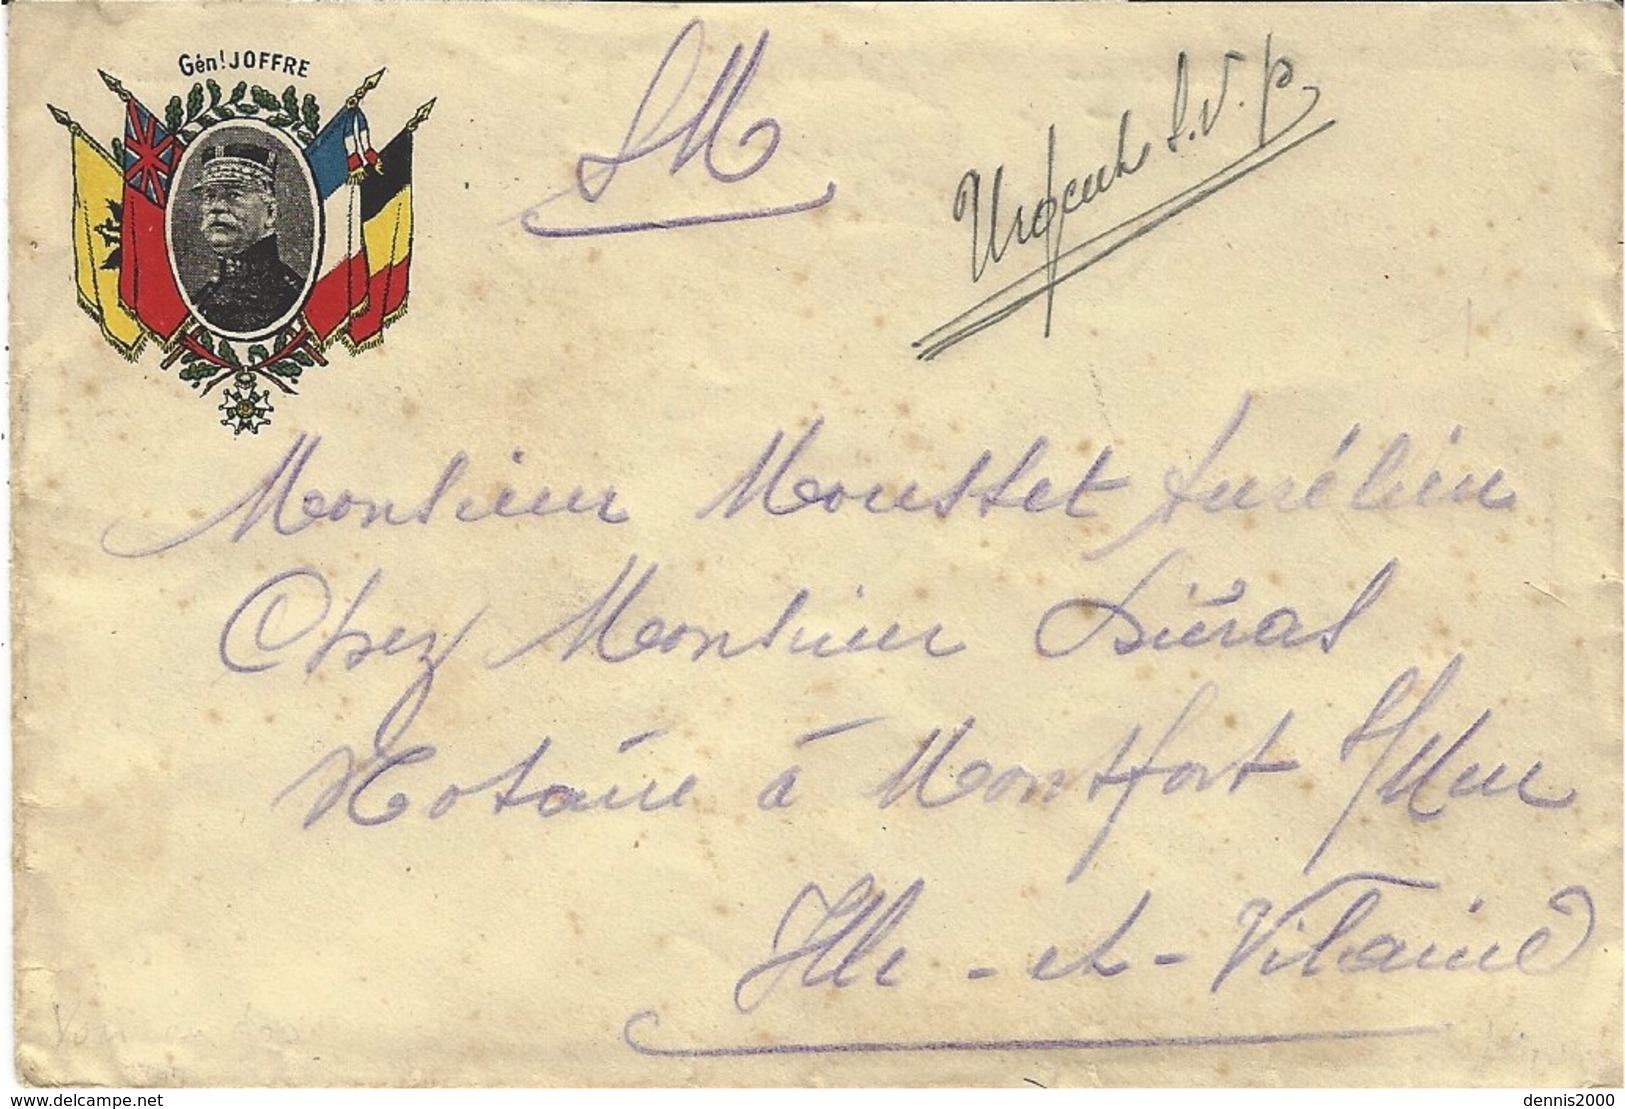 Gén! JOFFRE
SM
Urgent S.V.p.
Monsieur Mousset Aurélien
Chez Monsieur
Notaire à Montfort S/Meu
Ille-et-Vilaine
www.delcampe.net
dennis2000